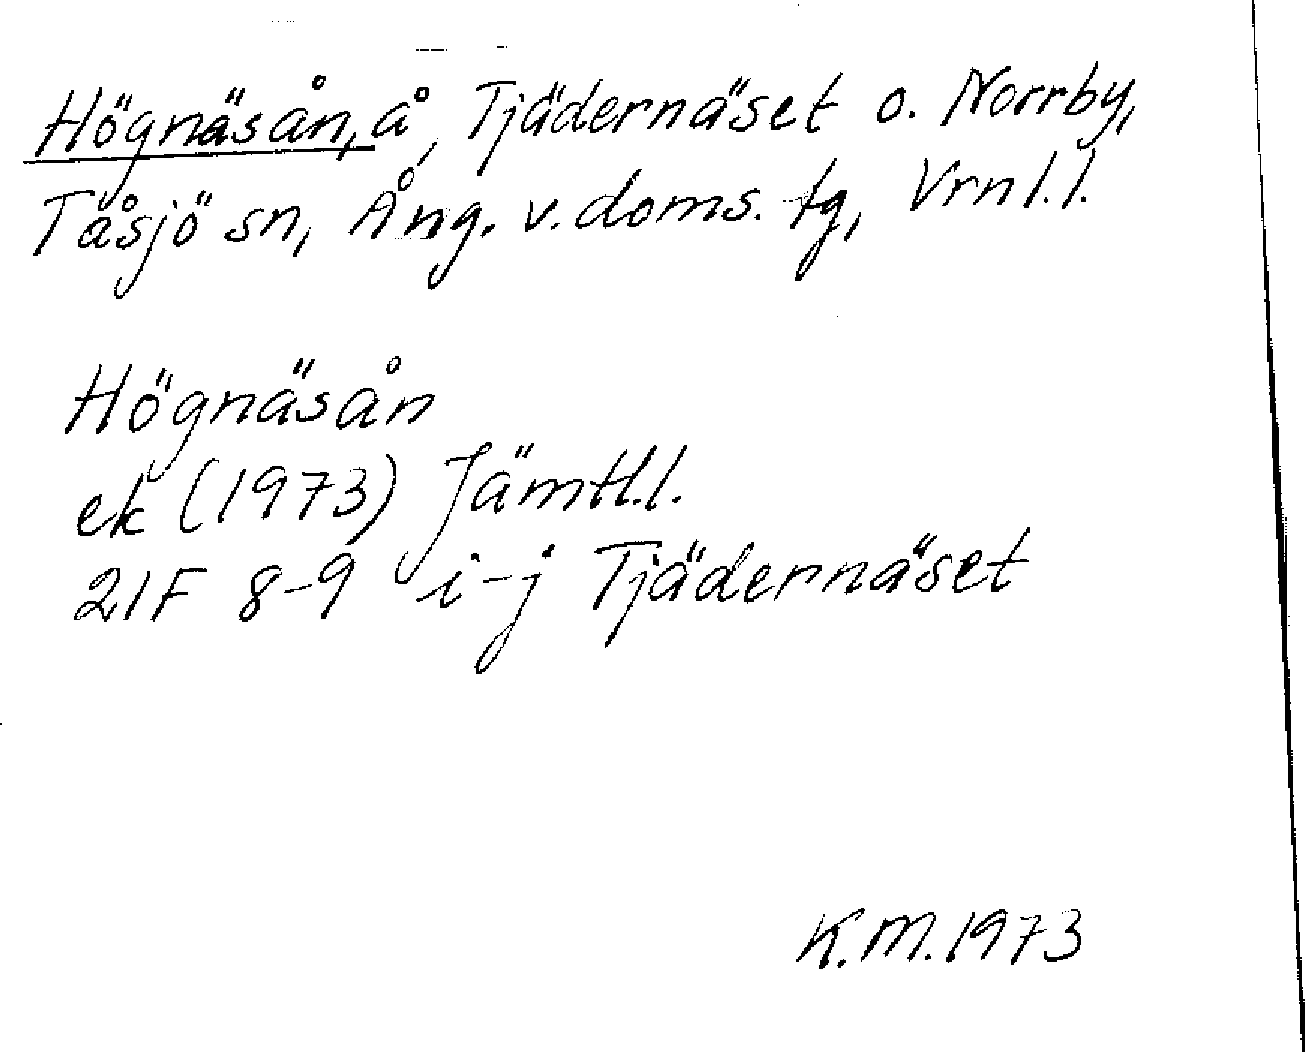 Högnäsån, å, Tjädernäset o. Norrby,
Tåsjö sn, Ång. v. doms. tg, Vrnl.l.
Högnäsån
ek (1973) Jämtl.l.
21F 8-9 i-j Tjädernäset
K.M. 1973